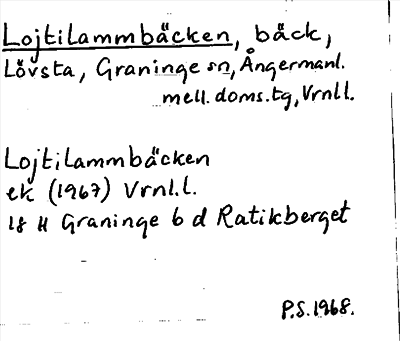 Lojtilammbäcken, bäck,
Lövsta, Graninge sn, Ångermanl.
mell. doms.tg, Vrnl.l.
Lojtilammbäcken
ek (1967) Vrnl.l.
18 H Graninge 6 d Ratikberget
P.S. 1968.